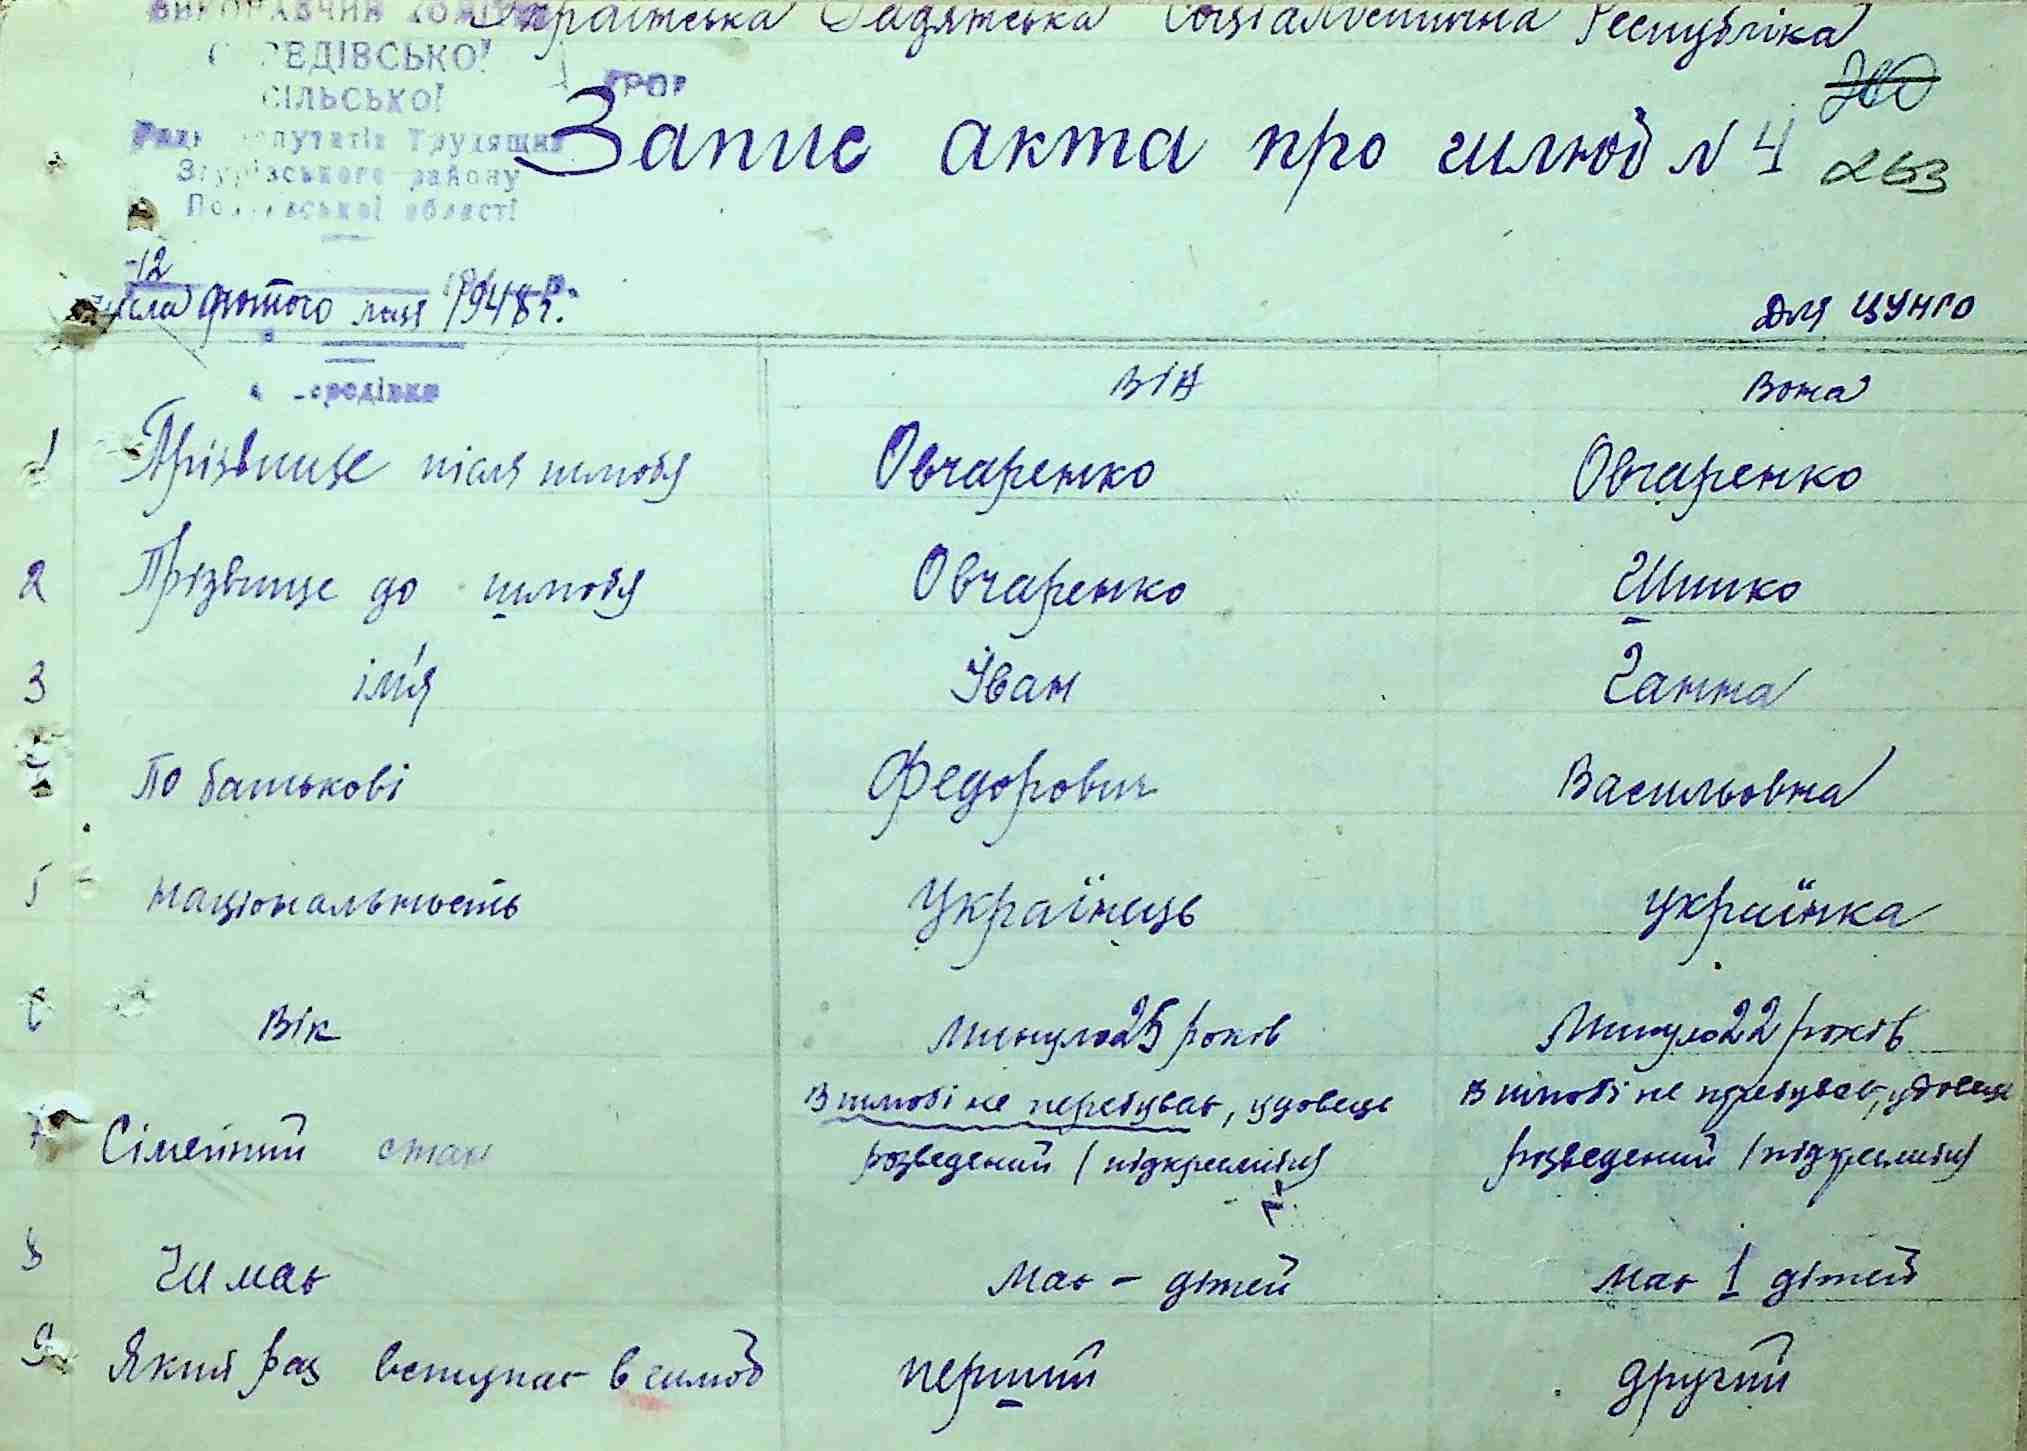 Українська Радянська Соціалистична Республіка
ВИКОНАВЧИЙ КОМІТЕТ
СЕРЕДІВСЬКОЇ
СІЛЬСЬКОЇ
Ради депутатів Трудящих
Згурівського району
Полтавської області
260
Запис акта про шлюб N 4
263
12
числа лютого м-ця 1948 р.
Для ЦУНГО
Середівка
Він Вона
1 Прізвище після шлюбя Овчаренко Овчаренко
2 Прізвище до шлюбя Овчаренко Шишко
3 ім'я Іван Ганна
4 По батькові Федорович Васильовна
5 Національность Українець українка
6 Вік Минуло 25 років Минуло 22 років
7 Сімейний стан В шлюбі не перебуває, удовець В шлюбі не перебуває, удовець
розведений (підкреслити) розведений (підкреслити)
8 Чи має має - дітей має 1 дітей
9 Який раз вступає в шлюб перший другий